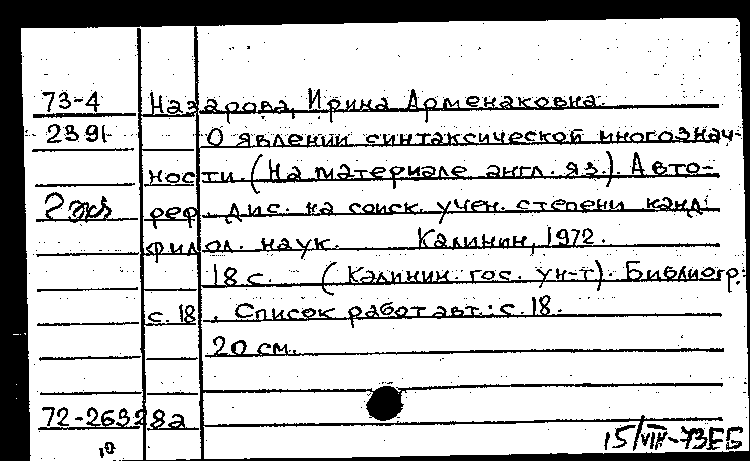 73-4 Назарова, Ирина Арменаковна.
2391 О явлении синтаксической многознач-
ности. (На материале англ. яз.). Авто-
2 экз реф. дис. на соиск. учен. степени канд.
филол. наук. Калинин, 1972.
18 с. (Калинин. гос. ун-т). Библиогр.:
с. 18. Список работ авт.: с. 18.
20 см.
72-26328а
15/VIII-73 ЕБ